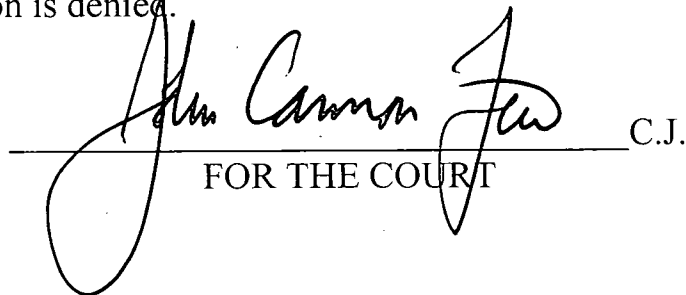 on is denied.
John Cannon Few C.J.
FOR THE COURT